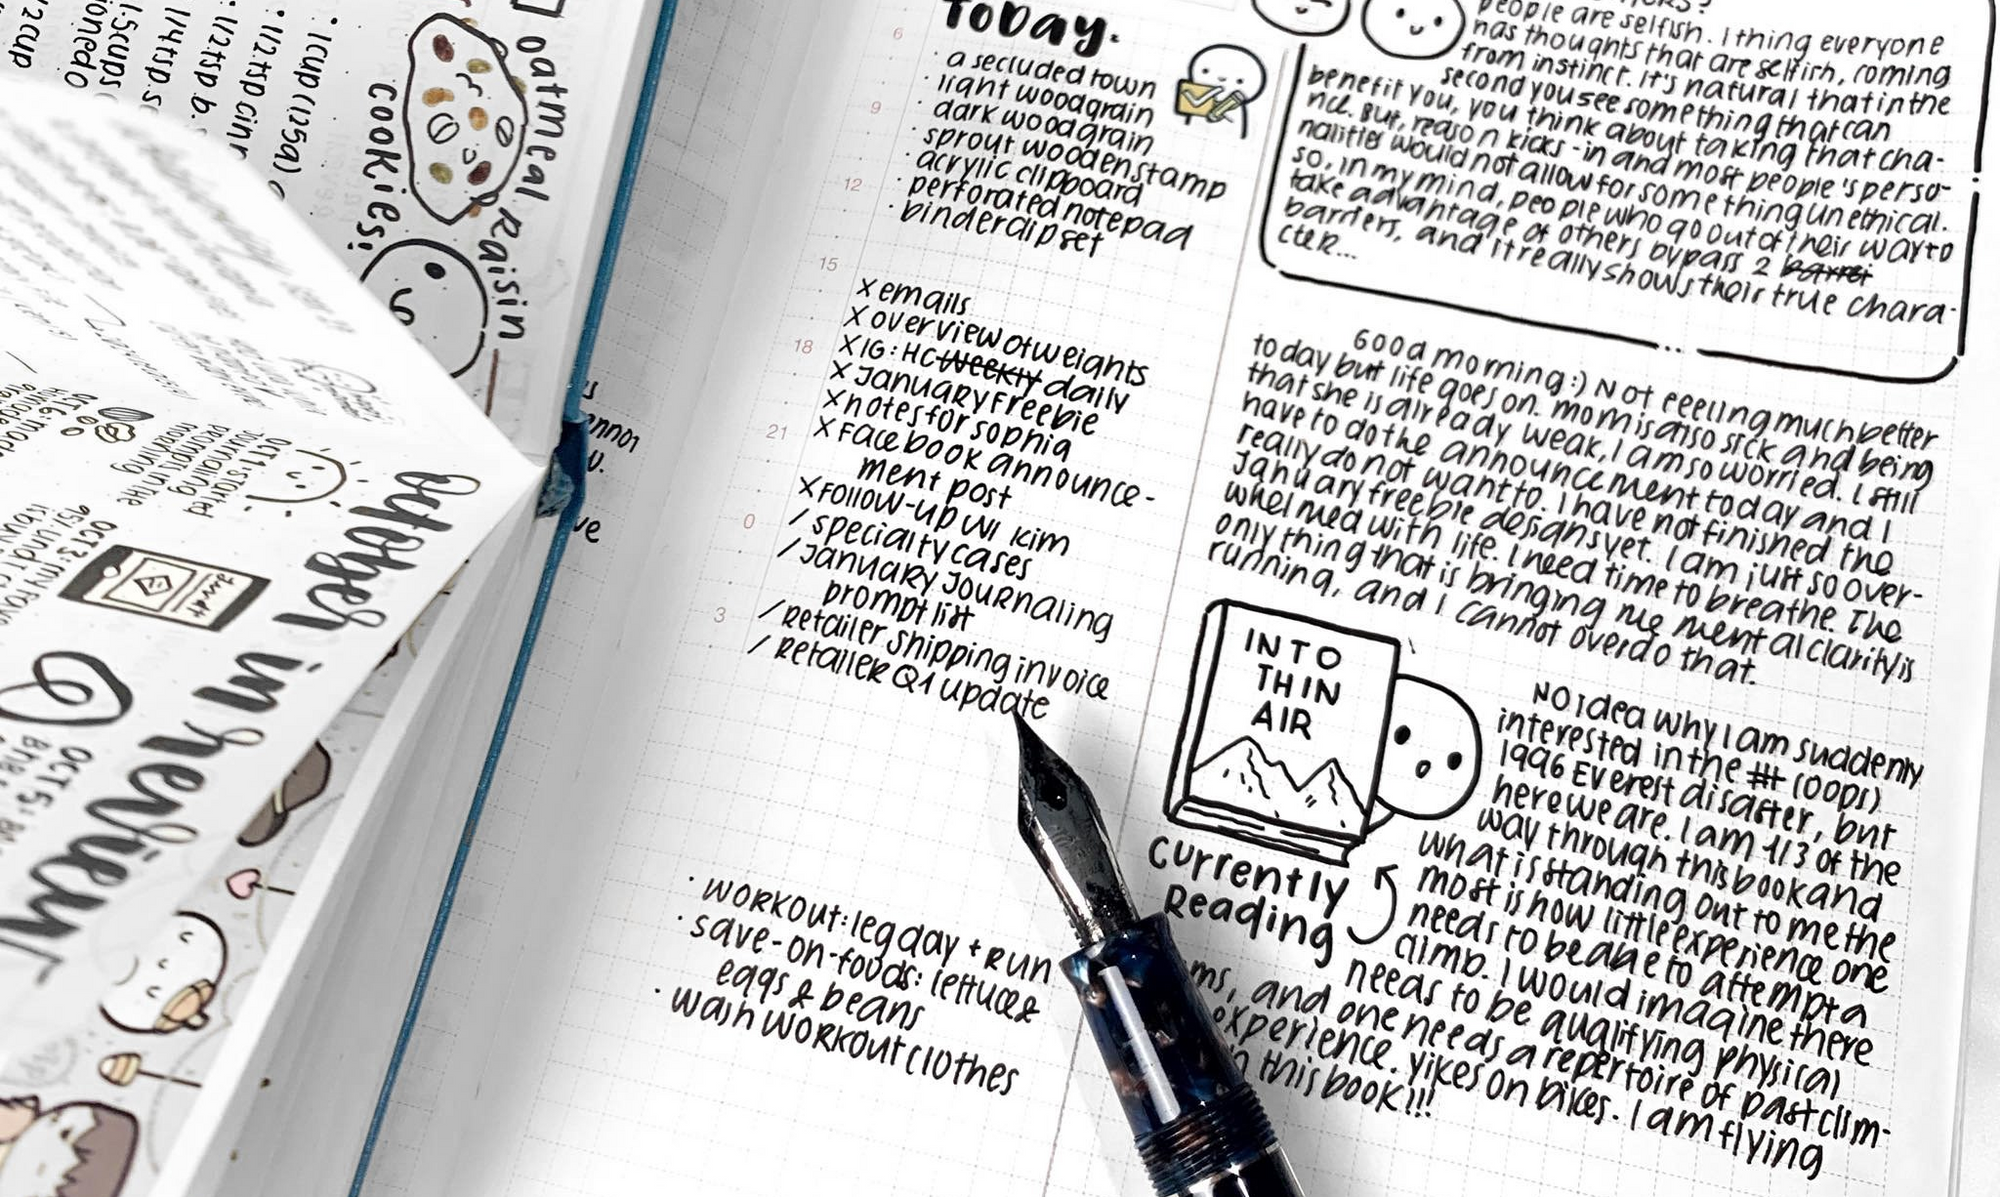 Today.
· a secluded town
· light woodgrain
· dark woodgrain
· sprout wooden stamp
· acrylic clipboard
· perforated notepad
· binder clip set
x emails
x overview of weights
x IG: HC weekly daily
x January Freebie
x notes for sophia
x Facebook announce-
ment post
x Follow-up w/ Kim
/ specialty cases
/ January Journaling
prompt list
/ Retailer shipping invoice
/ Retailer Q1 update
· workout: leg day + run
· save-on-foods: lettuce &
eggs & beans
· wash workout clothes
6
9
12
15
18
21
0
3
people are selfish. I thing everyone
has thoughts that are selfish, coming
from instinct. It's natural that in the
second you see something that can
benefit you, you think about taking that cha-
nce. But, reason kicks-in and most people's perso-
nalities would not allow for something unethical.
so, in my mind, people who go out of their way to
take advantage of others bypass 2
barriers, and it really shows their true chara-
cter...
Good morning :) Not feeling much better
today but life goes on. mom is also sick and being
that she is already weak, I am so worried. I still
have to do the announcement today and I
really do not want to. I have not finished the
January freebie designs yet. I am just so over-
whelmed with life. I need time to breathe. The
only thing that is bringing me mental clarity is
running, and I cannot overdo that.
INTO
THIN
AIR
Currently
Reading
No idea why I am suddenly
interested in the (oops)
1996 Everest disaster, but
here we are. I am 1/3 of the
way through this book and
what is standing out to me the
most is how little experience one
needs to be able to attempt a
climb. I would imagine there
needs to be qualifying physical
ms, and one needs a repertoire of past clim-
experience. Yikes on bikes. I am flying
in this book!!!
oatmeal raisin
cookies!
· 1 cup (125g)
· 1/2 tsp cin
· 1/2 tsp b.
1/4 tsp. s
1.5 cups
1/2 cup
october in review
OCT 1: started
journaling
prompts in the
morning
OCT 3: my
OCT 5:
OCT 6: made